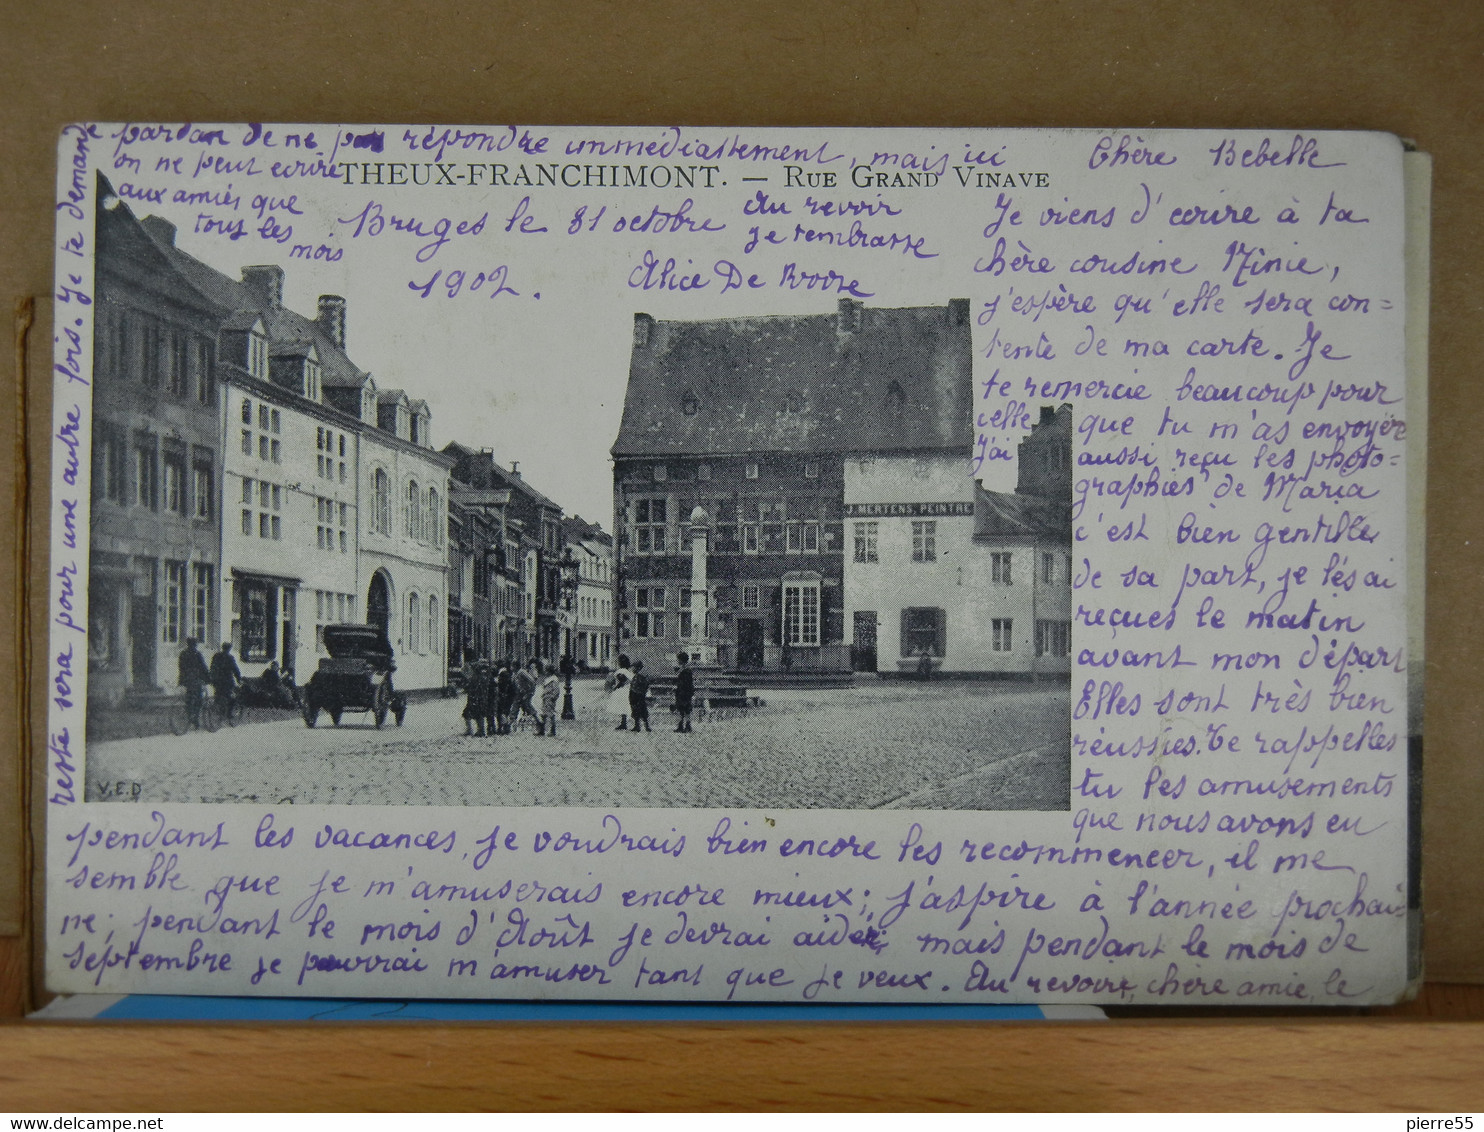 THEUX-FRANCHIMONT. — RUE GRAND VINAVE
Bruges le 31 octobre
1902.
Chère Bebelle
Je viens d'ecrire à ta
chère cousine Ninie,
j'espère qu'elle sera con=
tente de ma carte. Je
te remercie beaucoup pour
celle que tu m'as envoyée
J'ai aussi reçu les photo=
graphies de Maria
c'est bien gentille
de sa part, je les ai
reçues le matin
avant mon départ
Elles sont très bien
réussies. Te rappelles
tu les amusements
que nous avons eu
pendant les vacances, je voudrais bien encore les recommencer, il me
semble que je m'amuserais encore mieux; j'aspire à l'année prochai=
ne; pendant le mois d'Août je devrai aider, mais pendant le mois de
septembre je pourrai m'amuser tant que je veux. Au revoir, chère amie, le
reste sera pour une autre fois. Je te demande
pardon de ne pas répondre immédiattement, mais ici
on ne peut ecrire
aux amies que
tous les
mois
Au revoir
je t'embrasse
Alice De
J. MERTENS, PEINTRE
V.E.D
pierre55